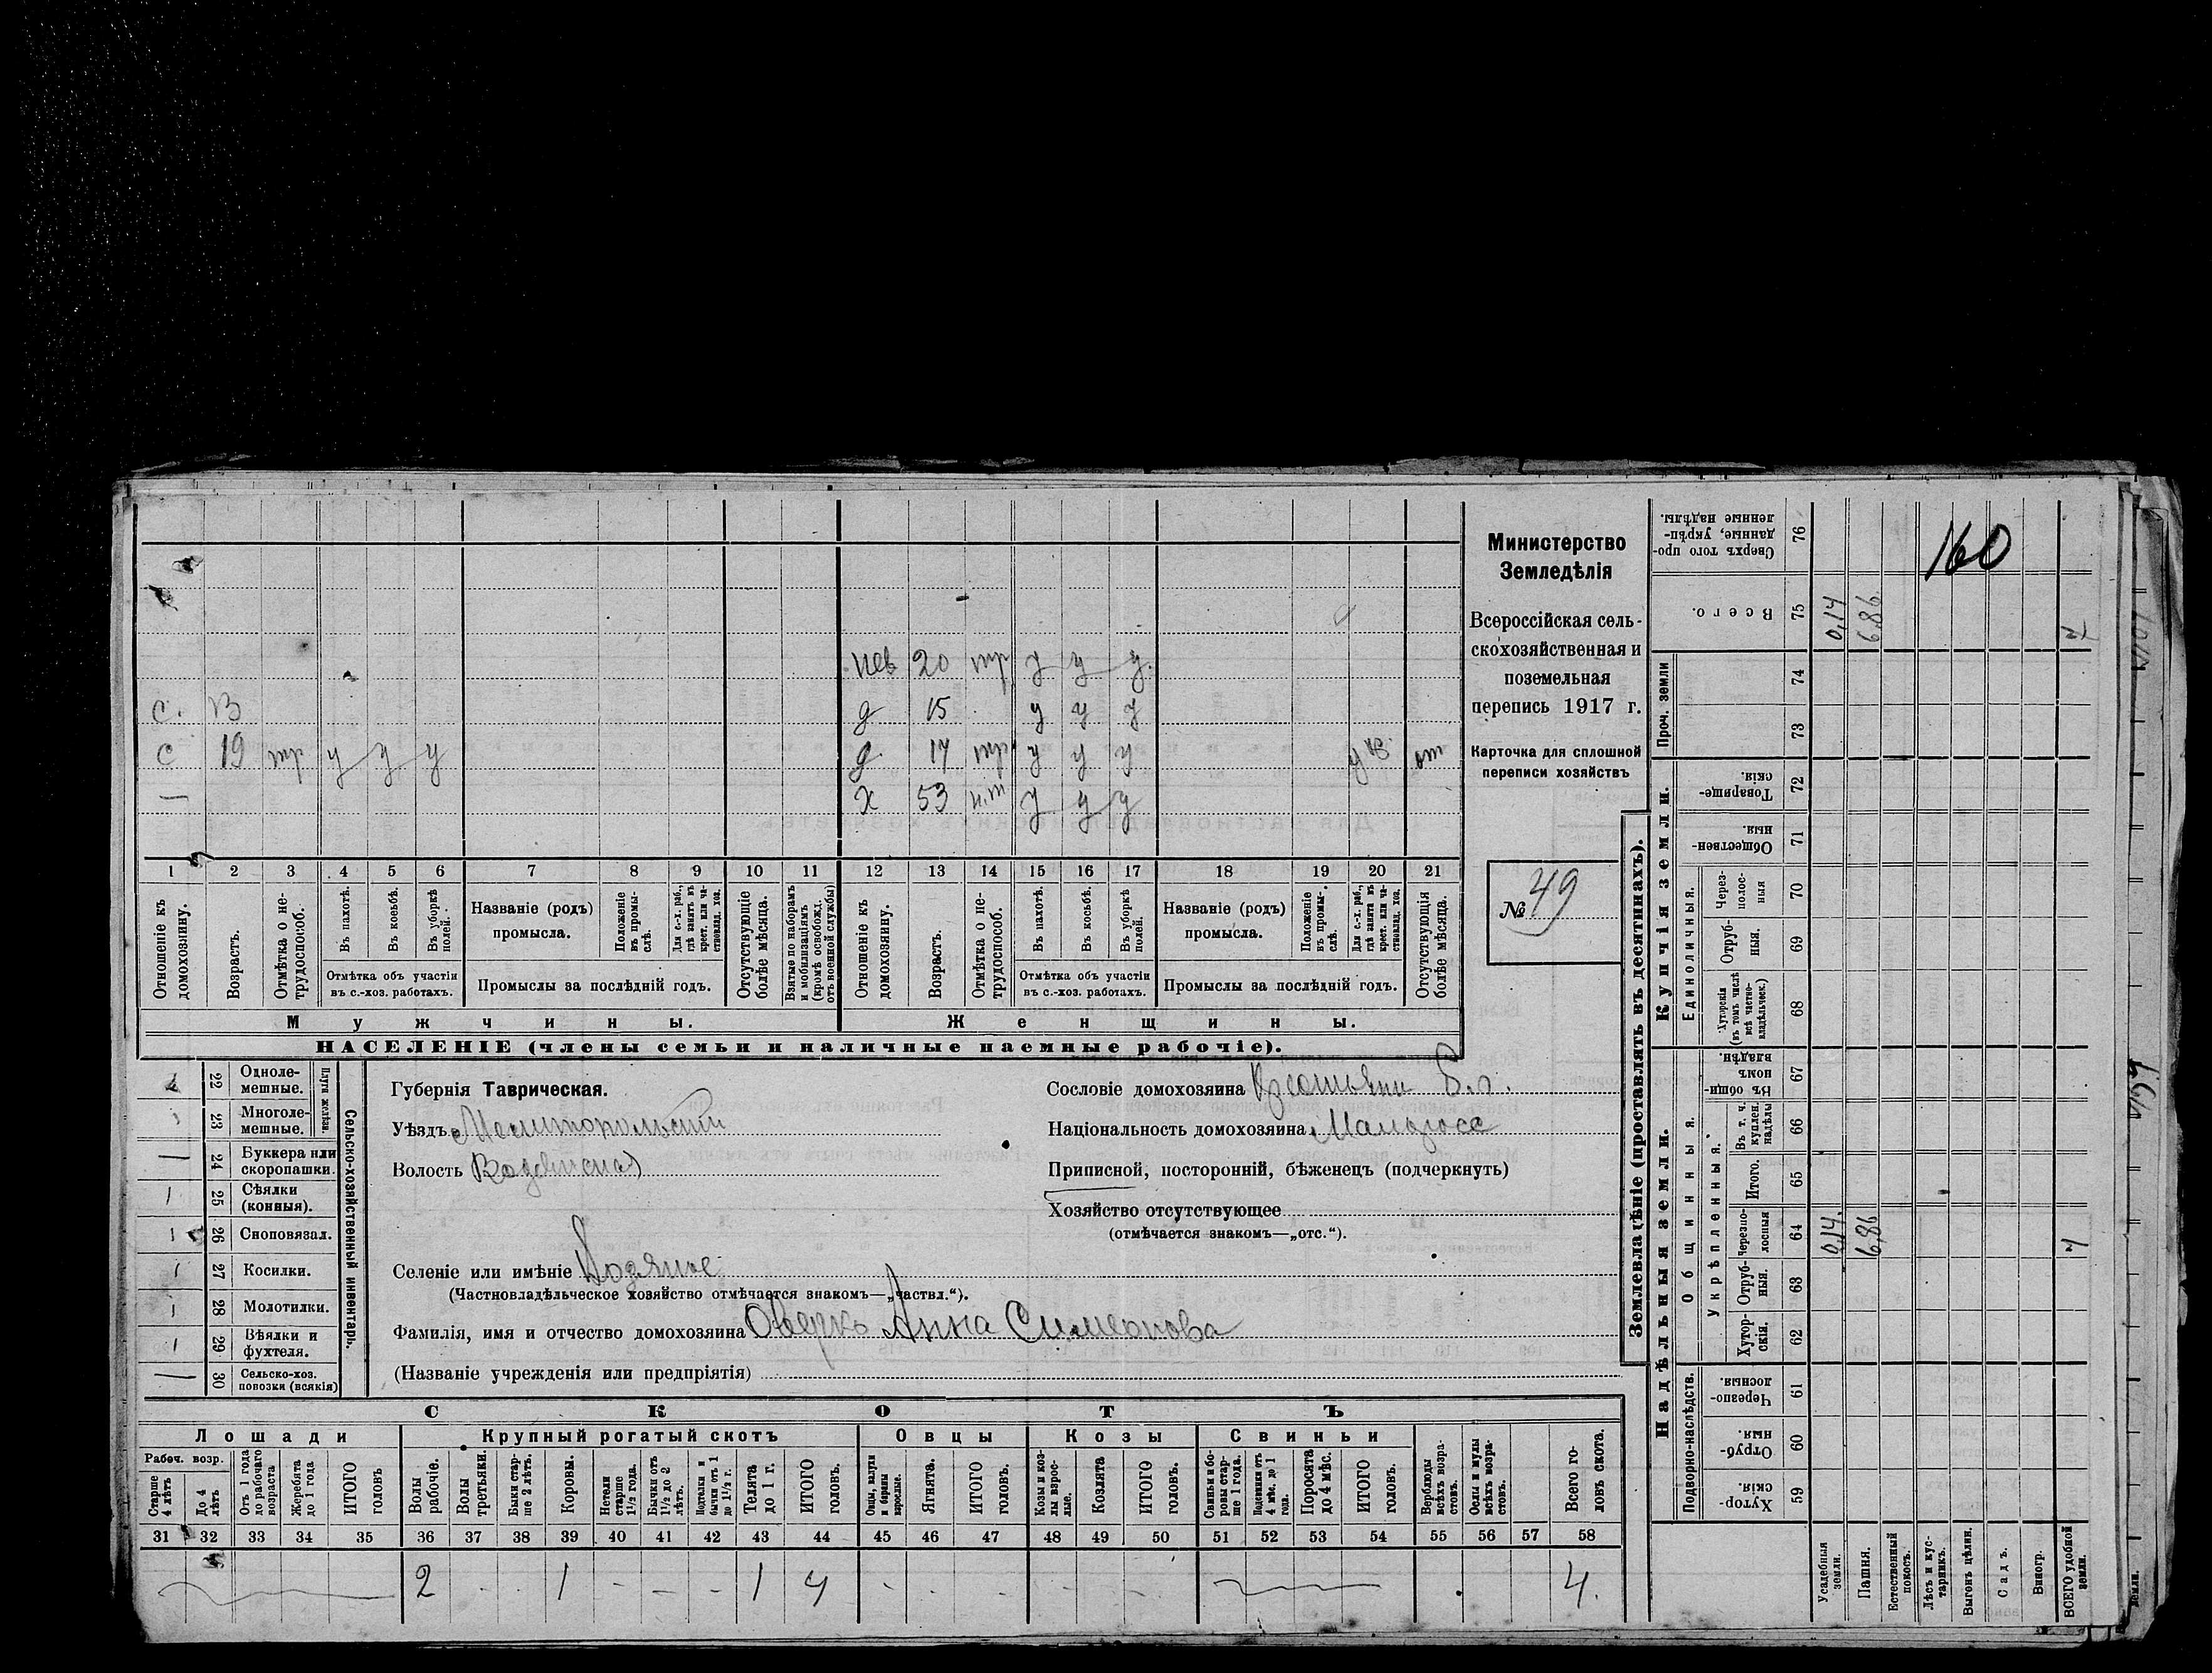 160
Министерство
Земледѣлія
Всероссійская сель-
скохозяйственная и
поземельная
перепись 1917 г.
Карточка для сплошной
переписи хозяйствъ
№ 49
нев 20 тр у у у
с. 13
д 15 у у у
с 19 тр у у у
д. 17 тр. у у у от
— х 53 н.т у у у
1 2 3 4 5 6 7 8 9 10 11 12 13 14 15 16 17 18 19 20 21
Отношеніе къ домохозяину.
Возрастъ.
Отмѣтка о не-трудоспособ.
Въ пахотѣ.
Въ косьбѣ.
Въ уборкѣ полей.
Отмѣтка объ участіи въ с.-хоз. работахъ.
Названіе (родъ) промысла.
Положеніе въ промы-слѣ.
Для с.-х. раб., гдѣ занятъ въ крест. или ча-стновлад. хоз.
Промыслы за послѣдній годъ.
Отсутствующіе болѣе мѣсяца.
Взятые по наборамъ и мобилизаціямъ (кромѣ освобожд. отъ военной службы)
Отношеніе къ домохозяину.
Возрастъ.
Отмѣтка о не-трудоспособ.
Въ пахотѣ.
Въ косьбѣ.
Въ уборкѣ полей.
Отмѣтка объ участіи въ с.-хоз. работахъ.
Названіе (родъ) промысла.
Положеніе въ промы-слѣ.
Для с.-х. раб., гдѣ занята въ крест. или ча-стновлад. хоз.
Промыслы за послѣдній годъ.
Отсутствующія болѣе мѣсяца.
Мужчины.
Женщины.
НАСЕЛЕНІЕ (члены семьи и наличные наемные рабочіе).
Сельско-хозяйственный инвентарь.
Плуги желѣзн.
22 Одноле-мешные.
23 Многоле-мешные.
— 24 Буккера или скоропашки.
25 Сѣялки (конныя).
26 Сноповязал.
27 Косилки.
28 Молотилки.
29 Вѣялки и фухтеля.
— 30 Сельско-хоз. повозки (всякія)
Губернія Таврическая.
Уѣздъ Мелитопольскій
Волость
Селеніе или имѣніе Водяное
(Частновладѣльческое хозяйство отмѣчается знакомъ—„частвл.“).
Фамилія, имя и отчество домохозяина Оверко Анна Симеонова
(Названіе учрежденія или предпріятія)
Сословіе домохозяина
Національность домохозяина Малоросс
Приписной, посторонній, бѣженецъ (подчеркнуть)
Хозяйство отсутствующее
(отмѣчается знакомъ—„отс.“).
СКОТЪ
Лошади
Крупный рогатый скотъ
Овцы
Козы
Свиньи
Рабоч. возр.
Старше 4 лѣтъ
До 4 лѣтъ
Отъ 1 года до рабочаго возраста
Жеребята до 1 года
ИТОГО головъ
Волы рабочіе.
Волы третьяки.
Быки стар-ше 2 лѣтъ.
Коровы.
Нетели старше 1½ года.
Бычки отъ 1½ до 2 лѣтъ.
Подтелки и бычки отъ 1 до 1½ г.
Телята до 1 г.
ИТОГО головъ.
Овцы, валухи и бараны взрослые.
Ягнята.
ИТОГО головъ.
Козы и коз-лы взрос-лые.
Козлята
ИТОГО головъ.
Свиньи и бо-ровы стар-ше 1 года.
Подсвинки отъ 4 мѣс. до 1 года.
Поросята до 4 мѣс.
ИТОГО головъ.
Верблюды всѣхъ возра-стовъ.
Ослы и мулы всѣхъ возра-стовъ.
Всего го-ловъ скота.
31 32 33 34 35 36 37 38 39 40 41 42 43 44 45 46 47 48 49 50 51 52 53 54 55 56 57 58
2 - - 1 - - - 1 4 - - - - - 4.
Землевладѣніе (проставлять въ десятинахъ).
Надѣльныя земли.
Купчія земли.
Проч. земли
Подворно-наслѣдств.
Общинныя.
Укрѣпленныя.
Единоличныя.
Хутор-скія. 59
Отруб-ныя 60
Черезпо-лосныя 61
Хутор-скія. 62
Отруб-ныя. 63
Черезпо-лосныя 64
Итого. 65
Въ т. ч. куплен. надѣлы 66
Въ общи-номъ владѣн. 67
Хуторскія (въ томъ числѣ всѣ частно-владѣльческ.) 68
Отруб-ныя. 69
Через-полос-ныя 70
Обществен-ныя. 71
Товарище-скія. 72
73
74
Всего. 75
Сверхъ того про-данные, укрѣп-ленные надѣлы. 76
Усадебныя земли. 0,14 0,14
Пашня. 6,86 6,86
Естественный покосъ.
Лѣсъ и кус-тарникъ.
Выгонъ цѣлин.
Садъ.
Виногр.
ВСЕГО удобной земли. 7 7